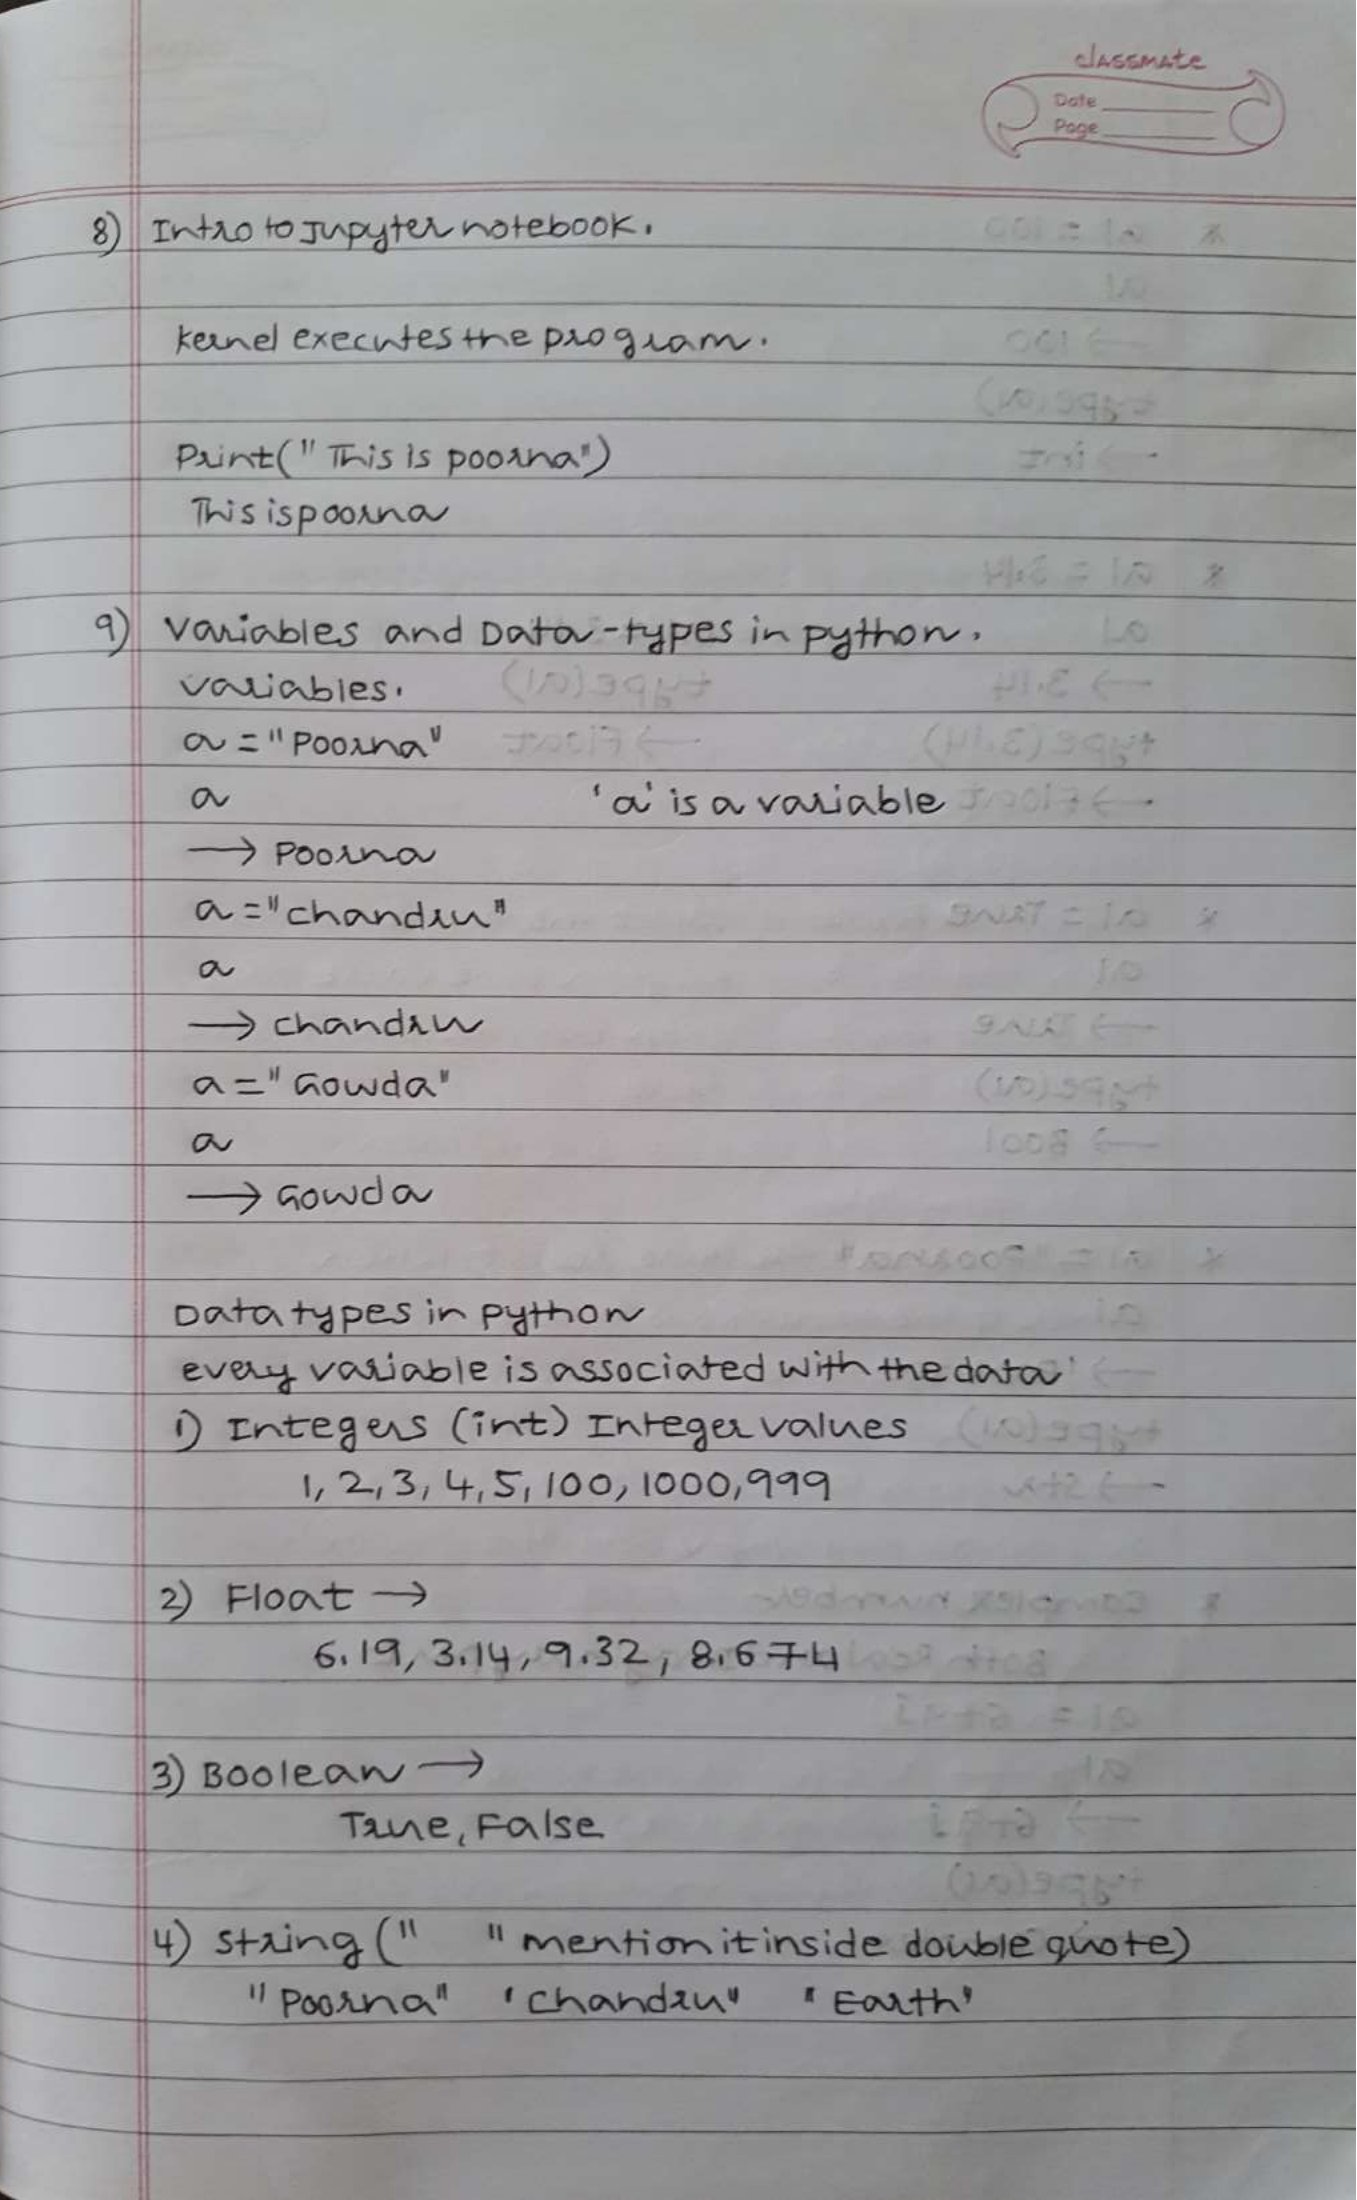 classmate
Date
Page
8) Intro to Jupyter notebook.
Kernel executes the program.
Print(" This is poorna")
This is poorna
9) Variables and Data-types in python.
variables.
a = "Poorna"
a 'a' is a variable
→ Poorna
a = "chandru"
a
→ chandru
a = "Gowda"
a
→ Gowda
Data types in python
every variable is associated with the data
1) Integers (int) Integer values
1, 2, 3, 4, 5, 100, 1000, 999
2) Float →
6.19, 3.14, 9.32, 8.674
3) Boolean →
True, False
4) string (" " mention it inside double quote)
"Poorna" 'chandru" "Earth'